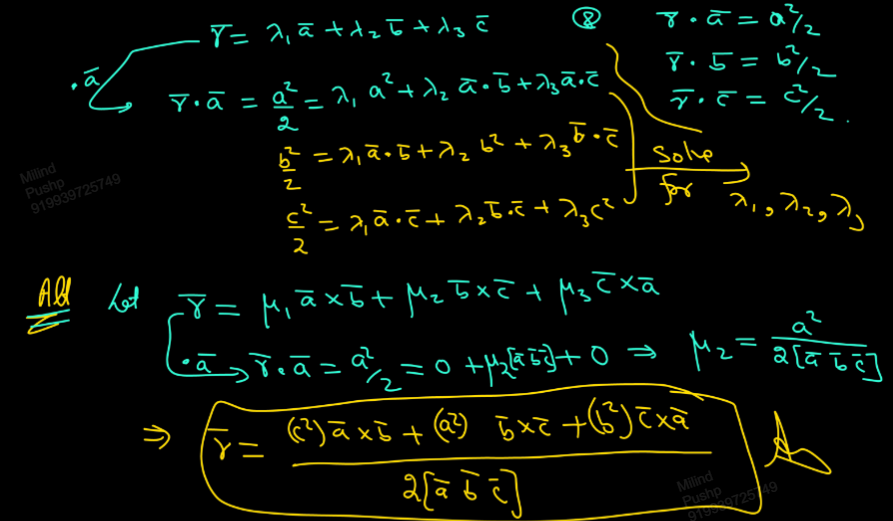 r̄ = λ₁ ā + λ₂ b̄ + λ₃ c̄
⑧ r̄ · ā = a²/2
r̄ · b̄ = b²/2
r̄ · c̄ = c²/2 .
· ā
r̄ · ā = a²/2 = λ₁ a² + λ₂ ā · b̄ + λ₃ ā · c̄
b²/2 = λ₁ ā · b̄ + λ₂ b² + λ₃ b̄ · c̄
c²/2 = λ₁ ā · c̄ + λ₂ b̄ · c̄ + λ₃ c²
Solve
for
λ₁, λ₂, λ₃
Milind
Pushp
919939725749
Let r̄ = μ₁ ā × b̄ + μ₂ b̄ × c̄ + μ₃ c̄ × ā
· ā r̄ · ā = a²/2 = 0 + μ₂[ā b̄ c̄] + 0 ⇒ μ₂ = a²/2[ā b̄ c̄]
⇒ r̄ = (c²) ā × b̄ + (a²) b̄ × c̄ + (b²) c̄ × ā / 2[ā b̄ c̄]
Milind
Pushp
919939725749